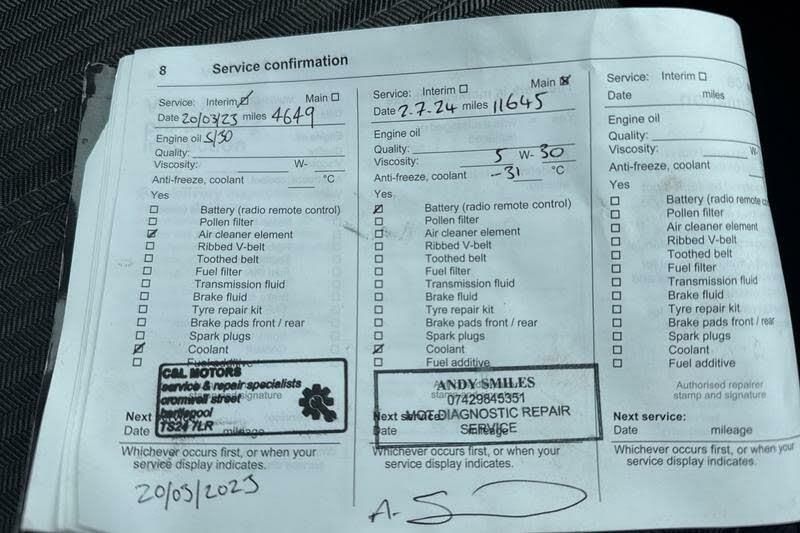 8 Service confirmation
Service: Interim Main
Date 20/03/23 miles 4649
Engine oil 5/30
Quality:
Viscosity: W-
Anti-freeze, coolant °C
Yes
Battery (radio remote control)
Pollen filter
Air cleaner element
Ribbed V-belt
Toothed belt
Fuel filter
Transmission fluid
Brake fluid
Tyre repair kit
Brake pads front / rear
Spark plugs
Coolant
Fuel additive
C&L MOTORS
service & repair specialists
cromwell street
hartlepool
TS24 7LR
signature
Next
Date mileage
Whichever occurs first, or when your
service display indicates.
20/03/2023
Service: Interim Main
Date 2.7.24 miles 11645
Engine oil
Quality:
Viscosity: 5 W- 30
Anti-freeze, coolant -31 °C
Yes
Battery (radio remote control)
Pollen filter
Air cleaner element
Ribbed V-belt
Toothed belt
Fuel filter
Transmission fluid
Brake fluid
Tyre repair kit
Brake pads front / rear
Spark plugs
Coolant
Fuel additive
ANDY SMILES
07429845351
MOT DIAGNOSTIC REPAIR
SERVICE
Next service:
Date mileage
Whichever occurs first, or when your
service display indicates.
Service: Interim
Date miles
Engine oil
Quality:
Viscosity: W-
Anti-freeze, coolant
Yes
Battery (radio remote con
Pollen filter
Air cleaner element
Ribbed V-belt
Toothed belt
Fuel filter
Transmission fluid
Brake fluid
Tyre repair kit
Brake pads front / rear
Spark plugs
Coolant
Fuel additive
Authorised repairer
stamp and signature
Next service:
Date mileage
Whichever occurs first, or when your
service display indicates.